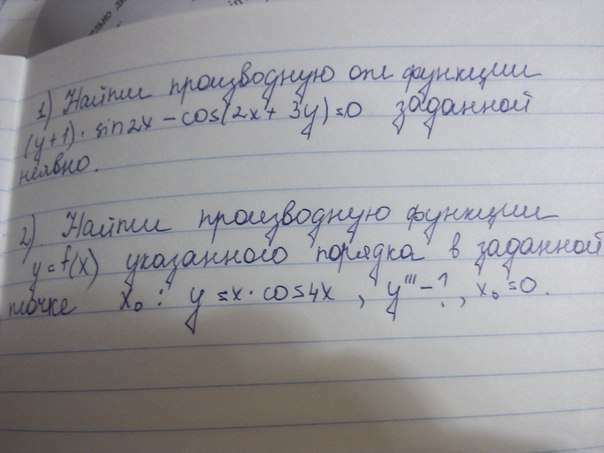 1) Найти производную от функции
(y+1)·sin2x-cos(2x+3y)=0 заданной
неявно.
2) Найти производную функции
y=f(x) указанного порядка в заданной
точке x₀: y=x·cos4x, y'''-?, x₀=0.